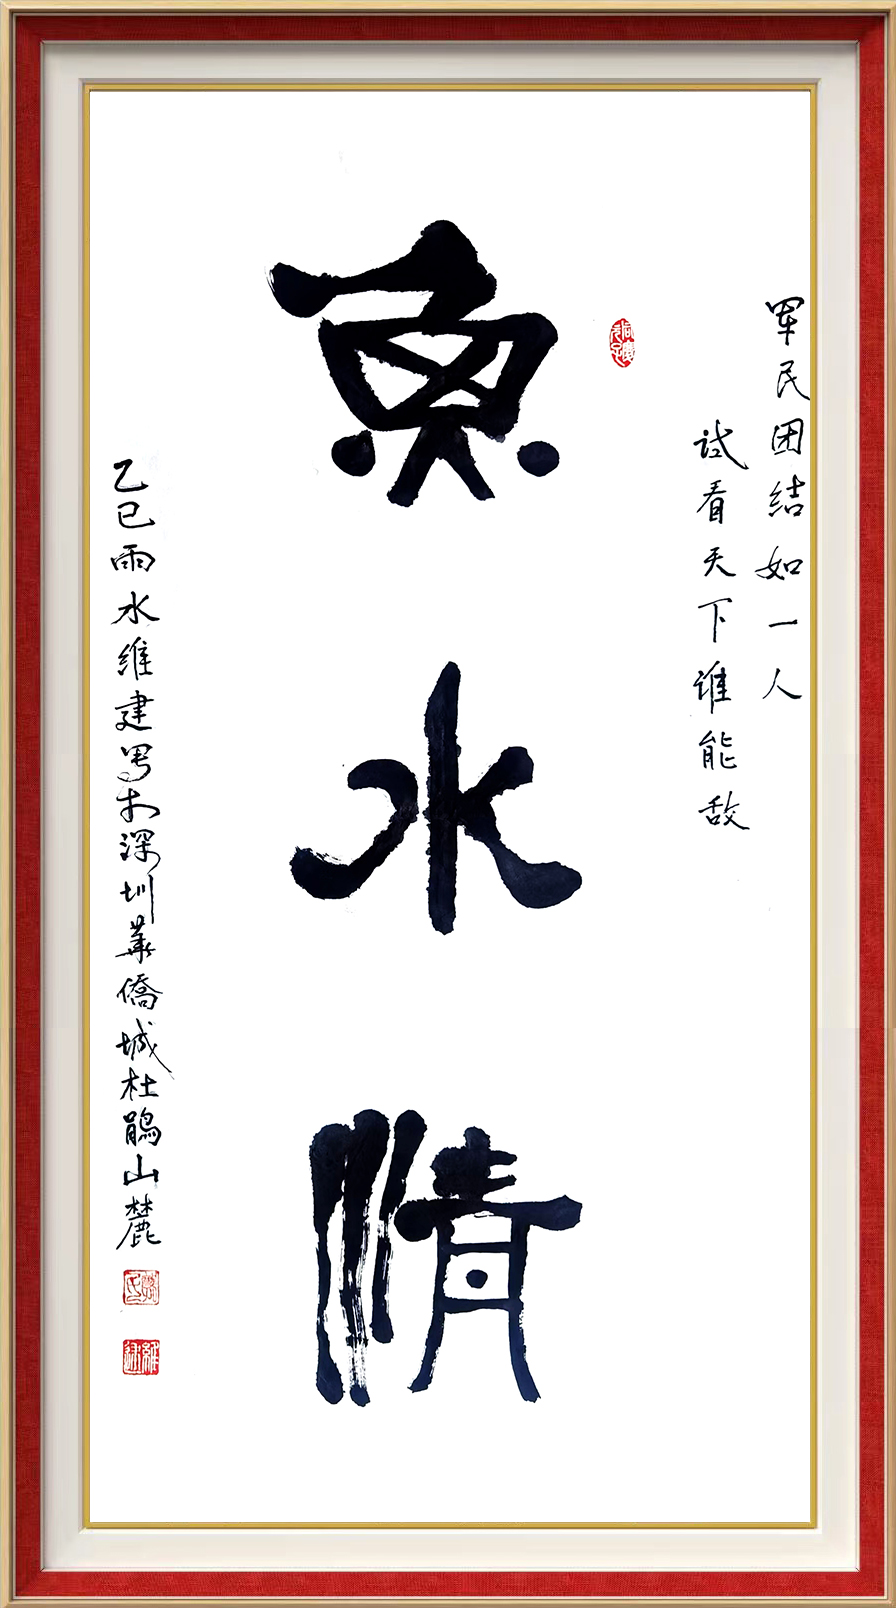 军民团结如一人
试看天下谁能敌
魚水情
乙巳雨水维建写于深圳華僑城杜鹃山麓